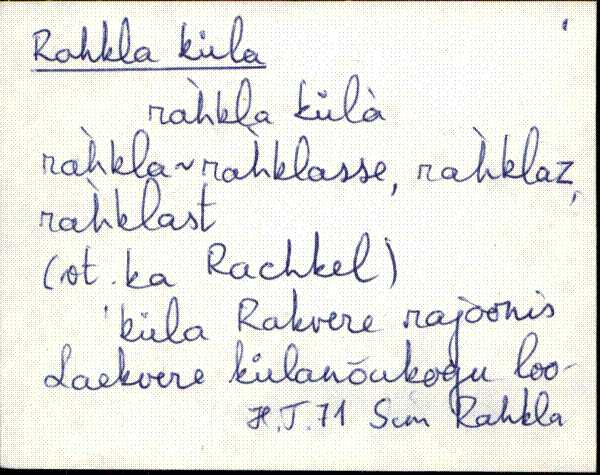 Rahkla küla
ràhkla külà
ràhkla ~ ràhklasse, ràhklaz,
ràhklast
(vt. ka Rachkel)
küla Rakvere rajoonis
Laekvere külanõukogu loo-
H.J. 71 Sim Rahkla